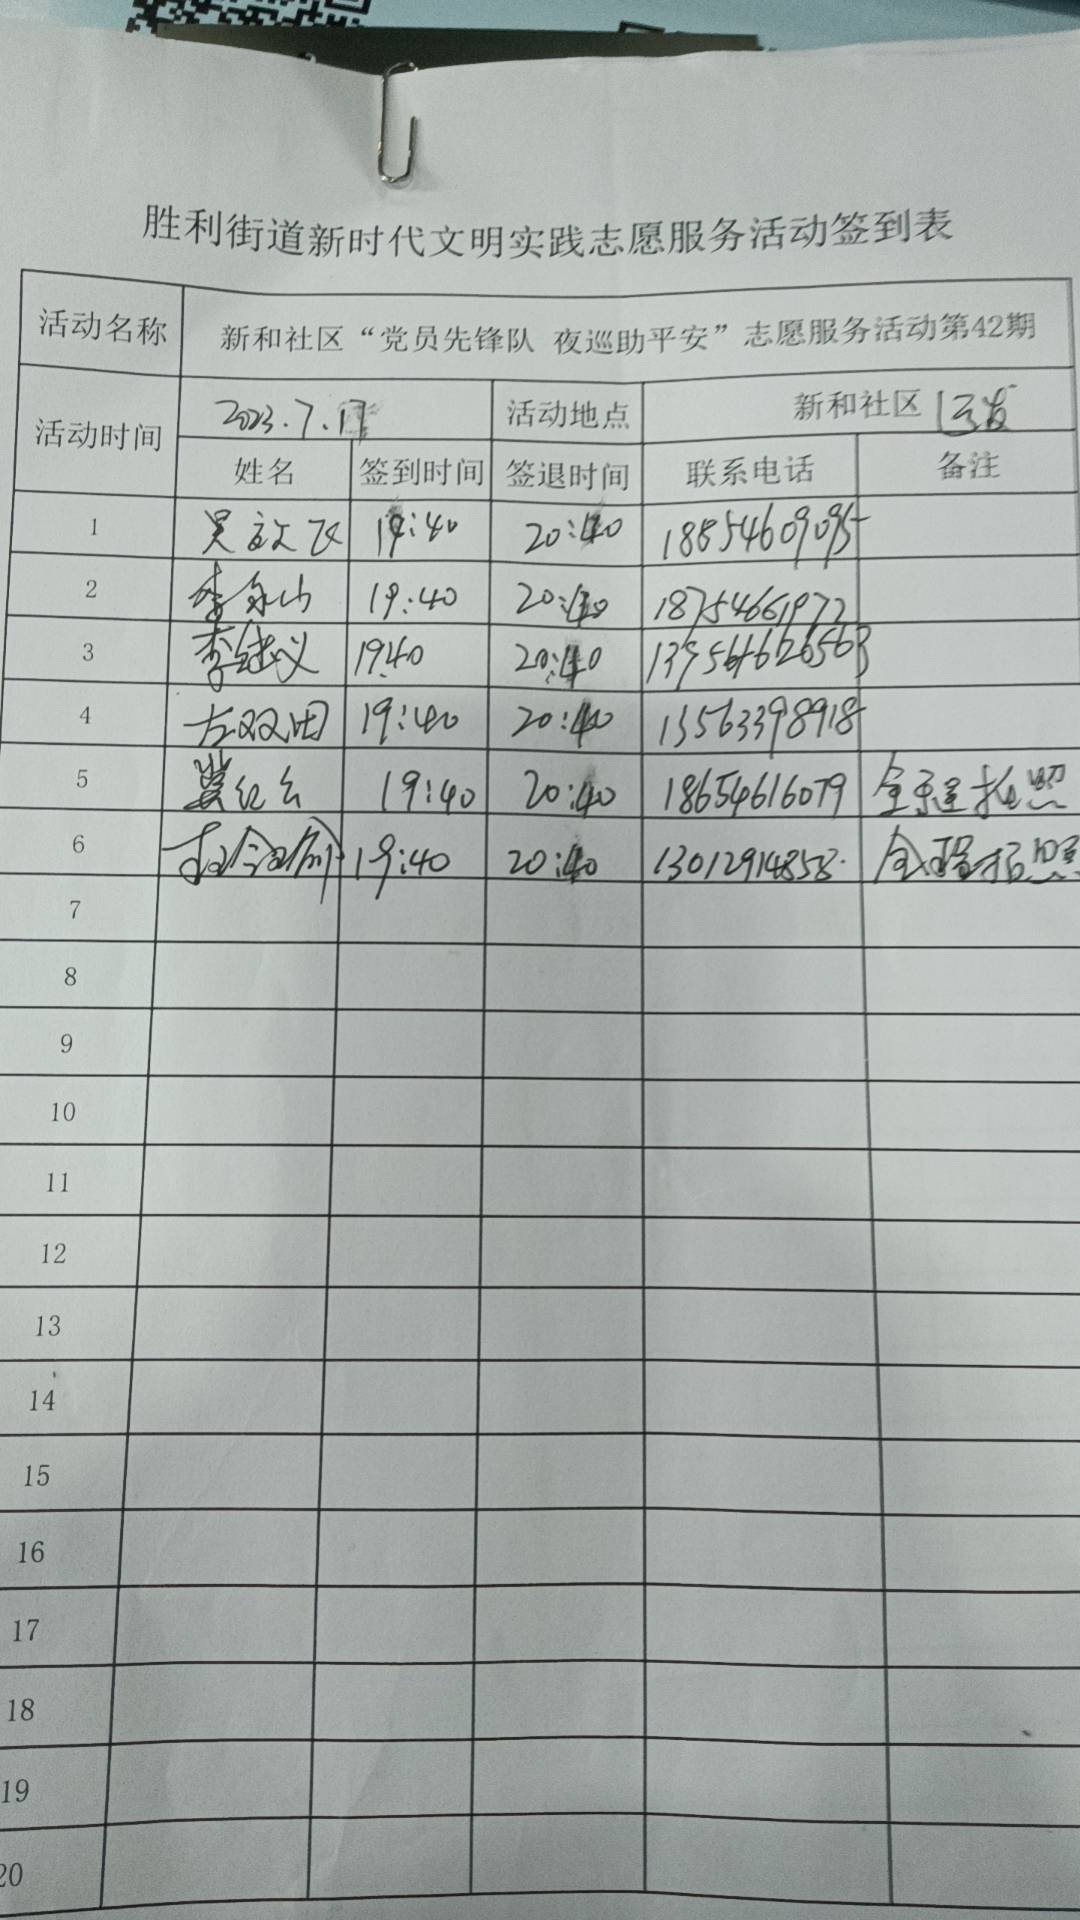 胜利街道新时代文明实践志愿服务活动签到表
活动名称 新和社区“党员先锋队 夜巡助平安”志愿服务活动第42期
活动时间 2023.7.17 活动地点 新和社区
姓名 签到时间 签退时间 联系电话 备注
1 吴文飞 19:40 20:40 18854609095
2 李永山 19:40 20:40 18754661972
3 李建义 19:40 20:40
4 左双田 19:40 20:40 13563398918
5 纪云 19:40 20:40 18654616079 全程拍照
6 19:40 20:40 13012914858 全程拍照
7
8
9
10
11
12
13
14
15
16
17
18
19
20